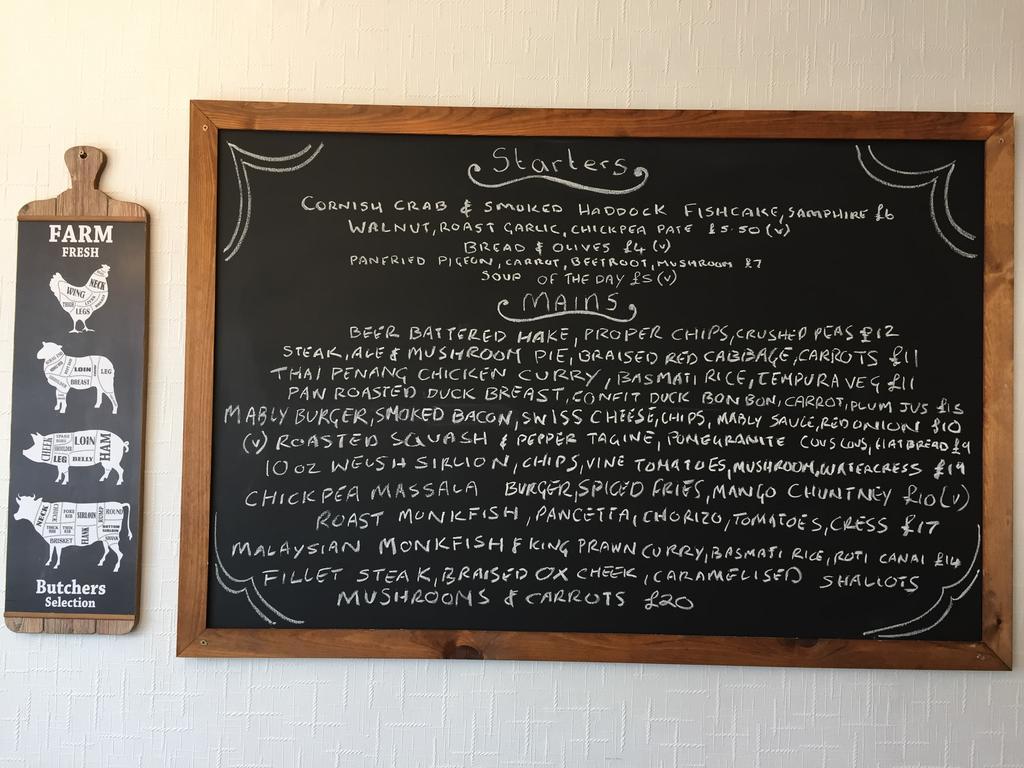 Starters
CORNISH CRAB & SMOKED HADDOCK FISHCAKE, SAMPHIRE £6
WALNUT, ROAST GARLIC, CHICKPEA PATE £5.50 (v)
BREAD & OLIVES £4 (v)
PANFRIED PIGEON, CARROT, BEETROOT, MUSHROOM £7
SOUP OF THE DAY £5 (v)
MAINS
BEER BATTERED HAKE, PROPER CHIPS, CRUSHED PEAS £12
STEAK, ALE & MUSHROOM PIE, BRAISED RED CABBAGE, CARROTS £11
THAI PENANG CHICKEN CURRY, BASMATI RICE, TEMPURA VEG £11
PAN ROASTED DUCK BREAST, CONFIT DUCK BON BON, CARROT, PLUM JUS £15
MABLY BURGER, SMOKED BACON, SWISS CHEESE, CHIPS, MABLY SAUCE, RED ONION £10
(v) ROASTED SQUASH & PEPPER TAGINE, POMEGRANITE COUS COUS, FLATBREAD £9
10 OZ WELSH SIRLION, CHIPS, VINE TOMATOES, MUSHROOM, WATERCRESS £19
CHICKPEA MASSALA BURGER, SPICED FRIES, MANGO CHUNTNEY £10 (v)
ROAST MONKFISH, PANCETTA, CHORIZO, TOMATOES, CRESS £17
MALAYSIAN MONKFISH & KING PRAWN CURRY, BASMATI RICE, ROTI CANAI £14
FILLET STEAK, BRAISED OX CHEEK, CARAMELISED SHALLOTS
MUSHROOMS & CARROTS £20
FARM
FRESH
NECK
WING
LEGS
LOIN
LEG
BREAST
CHEEK
LOIN
HAM
LEG
BELLY
NECK
CHUCK
SIRLOIN
RUMP
ROUND
BRISKET
FLANK
SHANK
Butchers
Selection